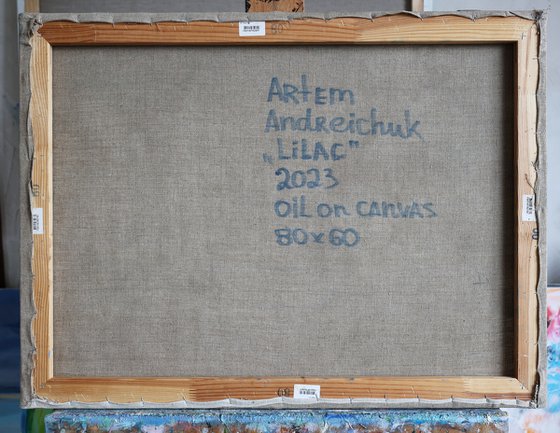 Artem
Andreichuk
„LiLAC"
2023
OIL on CANVAS
80×60